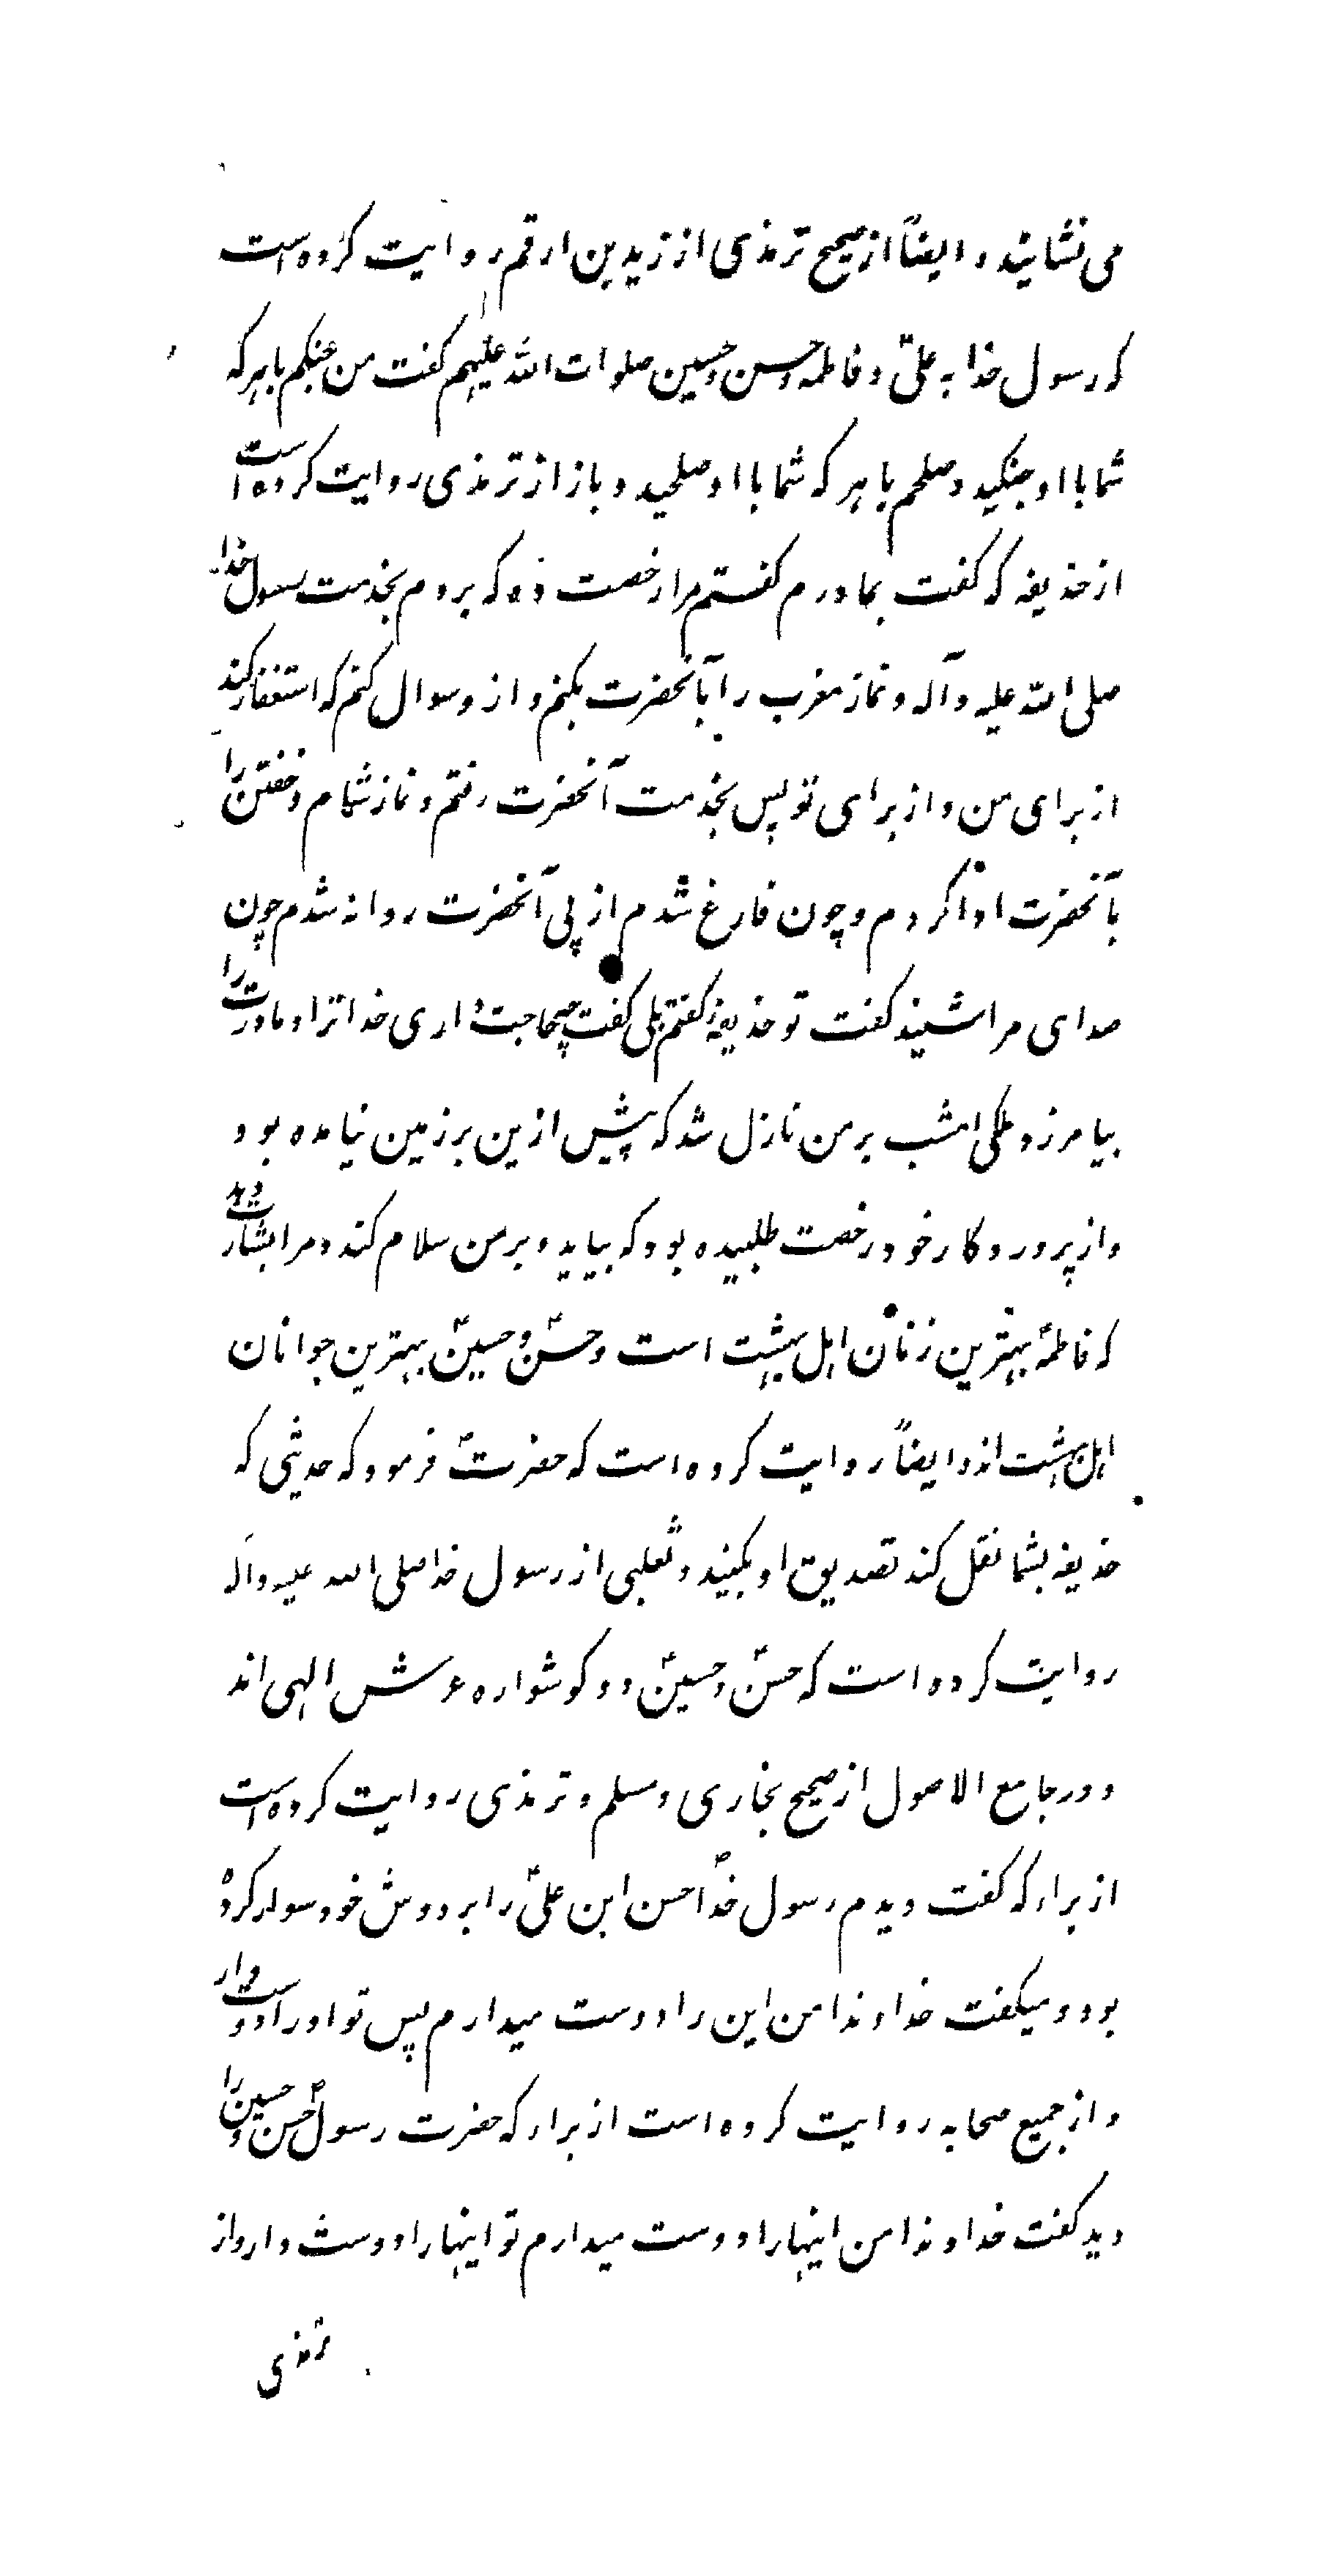 می نشانید و ایضاً از صحیح ترمذی از زید بن ارقم روایت کرده است
که رسول خدا به علیّ و فاطمه و حسن و حسین صلوات الله علیهم کفت من بجنکم با هر که
شما با او جنکید و صلحم با هر که شما با او صلحید و باز از ترمذی روایت کرده است
از حذیفه که کفت بمادرم کفتم مرا رخصت ده که بروم بخدمت رسول خدا
صلی الله علیه و آله و نماز مغرب را با آنحضرت بکنم و از و سوال کنم که استغفار کند
از برای من و از برای تو پس بخدمت آنحضرت رفتم و نماز شام و خفتن را
با آنحضرت ادا کردم و چون فارغ شدم از پی آنحضرت روانه شدم چون
صدای مرا شنید کفت تو حذیفهٔ کفتم بلی کفت چه حاجت داری خدا ترا و مادرت را
بیامرزد ملکی امشب بر من نازل شد که پیش ازین بر زمین نیامده بود
و از پروردکار خود رخصت طلبیده بود که بیاید و بر من سلام کند و مرا بشارت دهد
که فاطمهٔ بهترین زنان اهل بهشت است و حسنؑ و حسینؑ بهترین جوانان
اهل بهشت اند و ایضاً روایت کرده است که حضرتؐ فرمود که حدیثی که
حذیفه بشما نقل کند تصدیق او بکنید و ثعلبی از رسول خدا صلی الله علیه و آله
روایت کرده است که حسنؑ و حسینؑ دو کوشواره عرش الهی اند
و در جامع الاصول از صحیح بخاری و مسلم و ترمذی روایت کرده است
از براء که کفت دیدم رسول خداؐ حسن ابن علیؑ را بر دوش خود سوار کرده
بود و میکفت خداوندا من این را دوست میدارم پس تو او را دوست دار
و از جمیع صحابه روایت کرده است از براء که حضرت رسولؐ حسن و حسین را
دید کفت خداوندا من اینها را دوست میدارم تو اینها را دوست دار و از
ترمذی